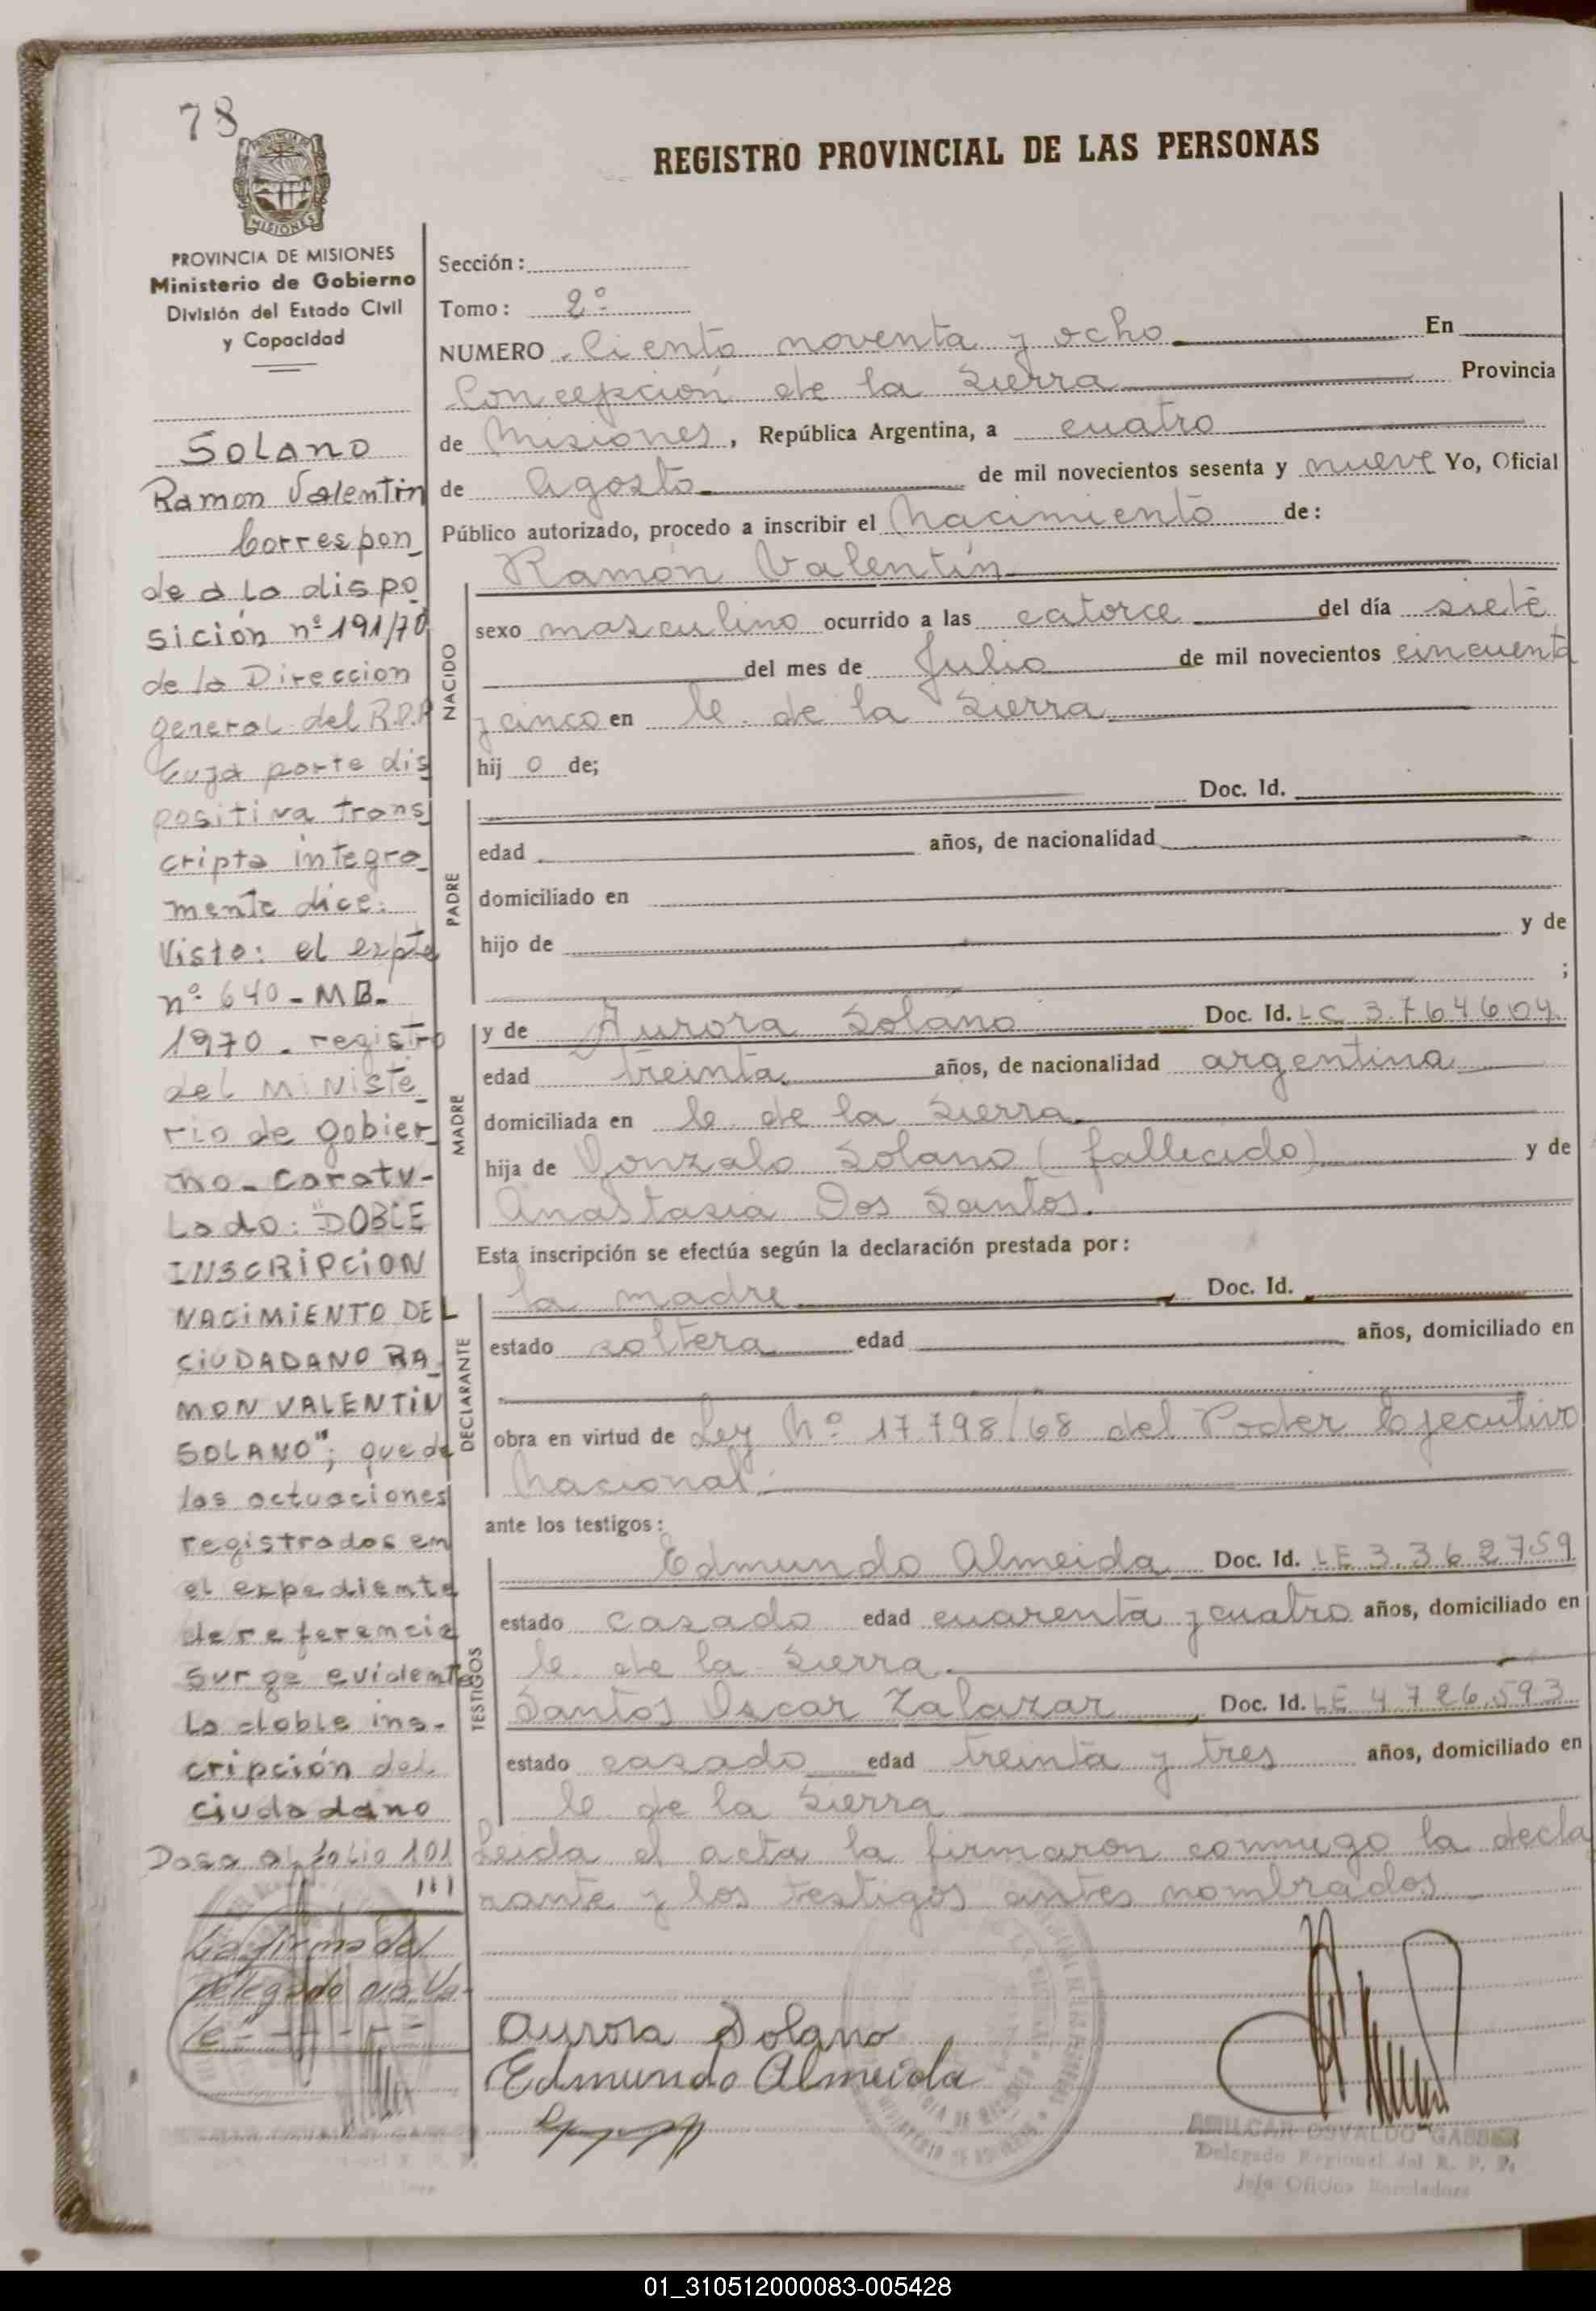 78
PROVINCIA DE MISIONES
Ministerio de Gobierno
División del Estado Civil
y Capacidad
SOLANO
Ramon Valentin
Correspon_
de a la dispo_
sición nº 191/70
de la Direccion
general del R.P.P
Cuya parte dis
positiva trans
cripta integra_
mente dice:
Visto: el expte
nº 640 - MB-
1970 - registro
del Ministe_
rio de gobier_
no - caratu-
lado: "DOBLE
INSCRIPCION
NACIMIENTO DEL
CIUDADANO RA_
MON VALENTIN
SOLANO"; que de
las actuaciones
registrados en
el expediente
de referencia
surge evidente
la doble ins-
cripción del
ciudadano
Pasa al folio 101
111
La firma del
delegado no va-
le - - - - -
REGISTRO PROVINCIAL DE LAS PERSONAS
Sección:
Tomo: 2º
NUMERO Ciento noventa y ocho En
Concepción de la Sierra Provincia
de Misiones, República Argentina, a cuatro
de Agosto de mil novecientos sesenta y nueve Yo, Oficial
Público autorizado, procedo a inscribir el Nacimiento de:
Ramón Valentín
NACIDO
sexo masculino ocurrido a las catorce del día siete
del mes de Julio de mil novecientos cincuenta
y cinco en C. de la Sierra
hij o de;
PADRE
Doc. Id.
edad años, de nacionalidad
domiciliado en
hijo de y de
;
MADRE
y de Aurora Solano Doc. Id. LC 3.764604
edad treinta años, de nacionalidad argentina
domiciliada en C. de la Sierra
hija de Gonzalo Solano (fallecido) y de
Anastasia Dos Santos.
Esta inscripción se efectúa según la declaración prestada por:
DECLARANTE
la madre Doc. Id.
estado soltera edad años, domiciliado en
obra en virtud de Ley Nº 17.798/68 del Poder Ejecutivo
Nacional.
ante los testigos:
TESTIGOS
Edmundo Almeida Doc. Id. LE 3.362759
estado casado edad cuarenta y cuatro años, domiciliado en
C. de la Sierra.
Santos Oscar Zalazar Doc. Id. LE 4.726.593
estado casado edad treinta y tres años, domiciliado en
C. de la Sierra
Leida el acta la firmaron conmigo la decla
rante y los testigos antes nombrados
Aurora Solano
Edmundo Almeida
AMILCAR OSVALDO
Delegado Regional del R. P. P.
Jefe Oficina Enroladora
01_310512000083-005428